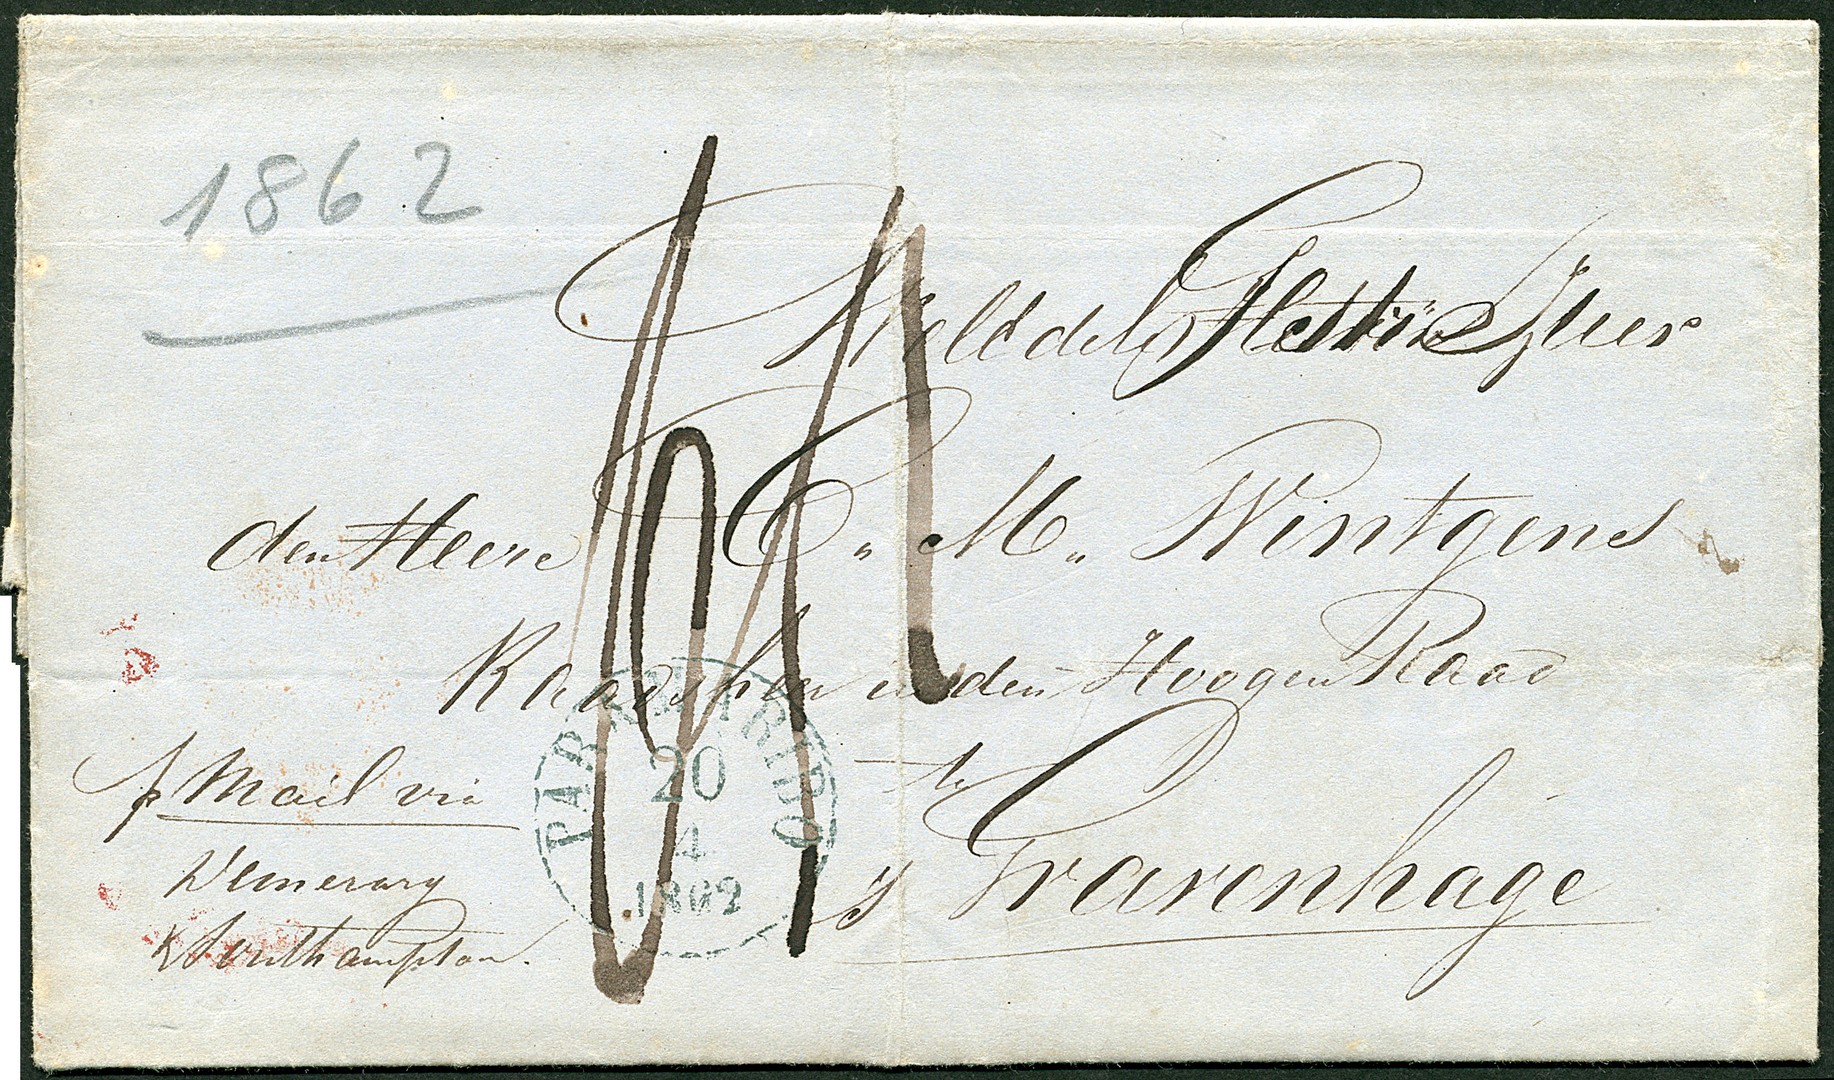 1862
Weledelgestrenge Heer
den Heere C. M. Wintgens
Raadsheer in den Hoogen Raad
te
's Gravenhage
p Mail via
Demerary
& Southampton.
PARAMARIBO
20
4
1862